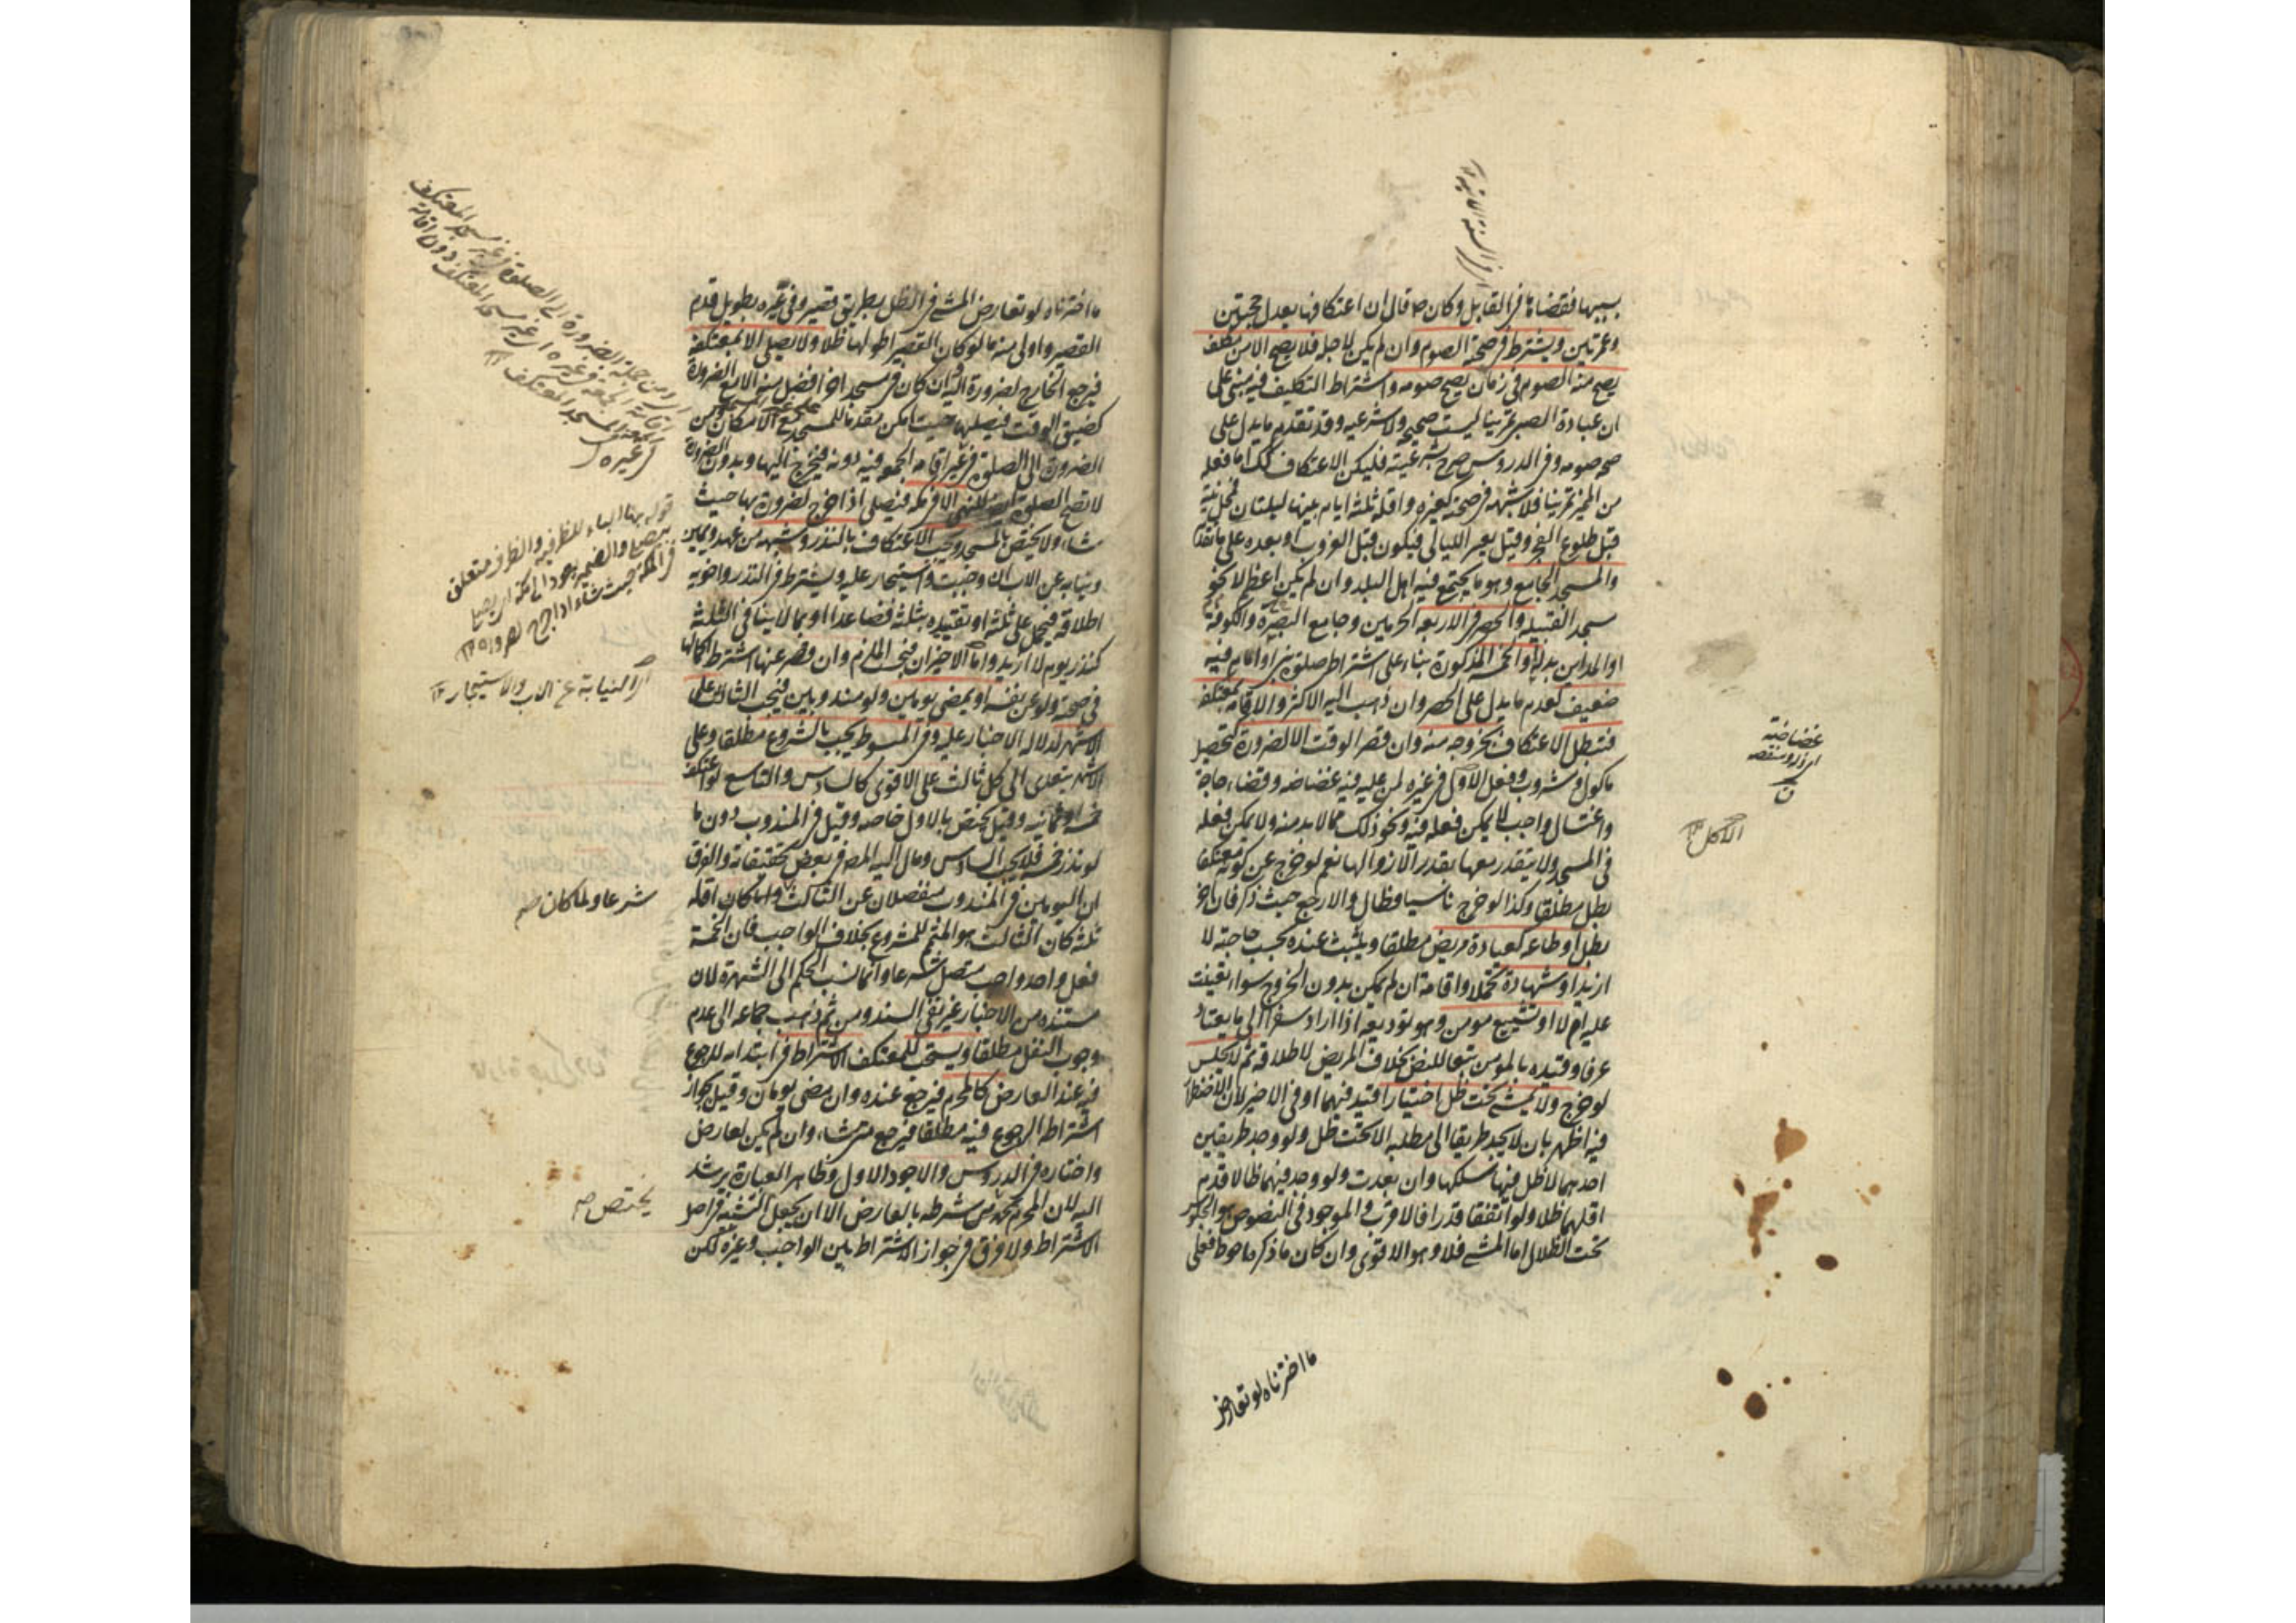 بسببها فقضاها في القابل وكان ص قال ان اعتكافها يعدل حجتين
وعمرتين ويشترط في صحته الصوم وان لم يكن لاجله فلا يصح الا من مكلف
يصح منه الصوم في زمان يصح صومه واشتراط التكليف فيه مبني على
ان عبادة الصبي تمرينا ليست صحيحة ولا شرعيه وقد تقدم ما يدل على
صحه صومه وفي الدروس صرح بشرعيته فليكن الاعتكاف كك اما فعله
من المميز تمرينا فلا شبهه في صحته كغيره واقله ثلثة ايام بينها ليلتان فمحل نية
قبل طلوع الفجر وقيل يعتبر الليالي فيكون قبل الغروب او بعده على ما تقدم
والمسجد الجامع وهو ما يجتمع فيه اهل البلد وان لم يكن اعظم لا نحو
مسجد القبيله والحصر في الاربعه الحرمين وجامع البصرة والكوفة
او المداين بدله او الخمسه المذكورة بناء على اشتراط صلوة نبي او امام فيه
ضعيف لعدم ما يدل على الحصر وان ذهب اليه الاكثر والاقامه بمعتكفه
فتبطل الاعتكاف بخروجه منه وان قصر الوقت الا لضرورة كتحصيل
ماكول ومشروب وفعل الاول في غيره لمن عليه فيه غضاضه وقضاء حاجة
واغتسال واجب لا يمكن فعله فيه ونحو ذلك مما لا بد منه ولا يمكن فعله
في المسجد ولا يتقدر معها بقدر الا زوالها نعم لو خرج عن كونه معتكفا
بطل مطلقا وكذا لو خرج ناسيا وطال والا رجع حيث ذكر فان اخر
بطل او طاعه كعيادة مريض مطلقا ويلبث عنده بحسب حاجته لا
ازيد او شهادة تحملا واقامة ان لم يمكن بدون الخروج سواء تعينت
عليه ام لا او تشييع مومن وهو توديعه اذا اراد سفرا الى ما يعتاد
عرفا وقيده بالمومن تبعا للنص بخلاف المريض لاطلاقه ثم لا يجلس
لو خرج ولا يمشي تحت ظل اختيارا قيد فيهما او في الاخير لان الاضطرار
فيه اظهر بان لا يجد طريقا الى مطلبه الا تحت ظل ولو وجد طريقين
احدهما لا ظل فيها سلكها وان بعدت ولو وجد فيهما ظالا قدم
اقلهما ظلا ولو اتفقا قدرا فالاقرب والموجود في النصوص هو الجلوس
تحت الظلال اما المشي فلا وهو الاقوى وان كان ما ذكره احوط فعلى
ما اخترناه لو تعارض
غضاضة
اي ذل ومنقصه
الاكل ١٢
ما اخترناه لو تعارض المشي في الظل بطريق قصير وفي غيره بطويل قدم
القصير واولى منه ما لو كان القصير اطولهما ظلا ولا يصلي الا بمعتكفه
فيرجع الخارج لضرورة اليه وان كان في مسجد اخر افضل منه الا مع الضرورة
كضيق الوقت فيصليها حيث امكن مقدما للمسجد مع الامكان ومن
الضرورة الى الصلوة في غيره اقامه الجمعه فيه دونه فيخرج اليها وبدون الضرورة
لا تصح الصلوة للنهي الا في مكه فيصلي اذا خرج لضرورة بها حيث
شاء ولا يختص بالمسجد ويجب الاعتكاف بالنذر وشبهه من عهد ويمين
ونيابه عن الاب ان وجبت واستيجار عليه ويشترط في النذر واخويه
اطلاقه فيحمل على ثلثة او تقييده بثلثة فصاعدا او بما لا ينافي الثلثة
كنذر يوم لا ازيد واما الاخيران فبحسب الملتزم وان قصر عنها اشترط اكمالها
في صحته ولو عن نفسه او بمضي يومين ولو مندوبين فيجب الثالث على
الاشهر لدلاله الاخبار عليه وفي المبسوط يجب بالشروع مطلقا وعلى
الاشهر يتعدى الى كل ثالث على الاقوى كالسادس والتاسع لو اعتكف
خمسه او ثمانيه وقيل يختص بالاول خاصه وقيل في المندوب دون ما
لو نذر خمسه فلا يجب السادس ومال اليه المصه في بعض تحقيقاته والفرق
ان اليومين في المندوب منفصلان عن الثالث ولما كان اقله
ثلثه كان الثالث هو المتمم للمشروع بخلاف الواجب فان الخمسة
فعل واحد واجب متصل شرعا وانما نسب الحكم الى الشهرة لان
مستنده من الاخبار غير نقي السند ومن ثم ذهب جماعه الى عدم
وجوب النفل مطلقا ويستحب للمعتكف الاشتراط في ابتدائه للرجوع
فيه عند العارض كالمحرم فيرجع عنده وان مضى يومان وقيل يجوز
اشتراط الرجوع فيه مطلقا فيرجع متى شاء وان لم يكن لعارض
واختاره في الدروس والاجود الاول وظاهر العبارة يرشد
اليه لان المحرم يختص شرطه بالعارض الا ان يجعل التشبيه في اصل
الاشتراط ولا فرق في جواز الاشتراط بين الواجب وغيره لكن
قوله بها الباء للظرفيه والظرف متعلق
بيصلي والضمير يعود الى مكة اي يصلي
في المكة حيث شاء اذا خرج لضرورة ١٢
اي النيابة عن الاب والاستيجار ١٢
شرعا ولما كان صم
يختص صم